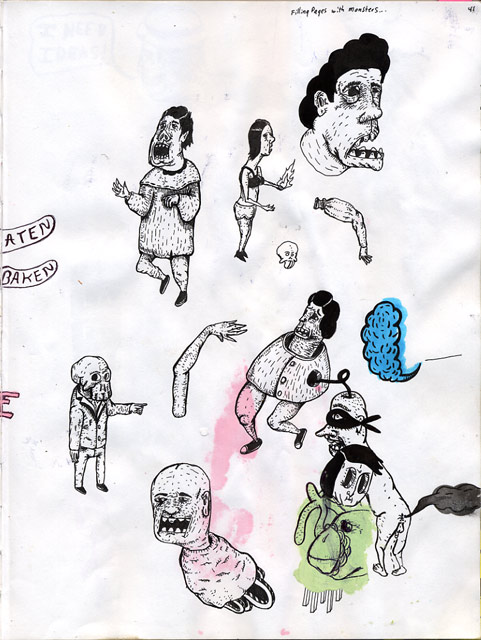 Filling Pages with monsters...
43
I NEED
IDEAS!
ATEN
BAKEN
E